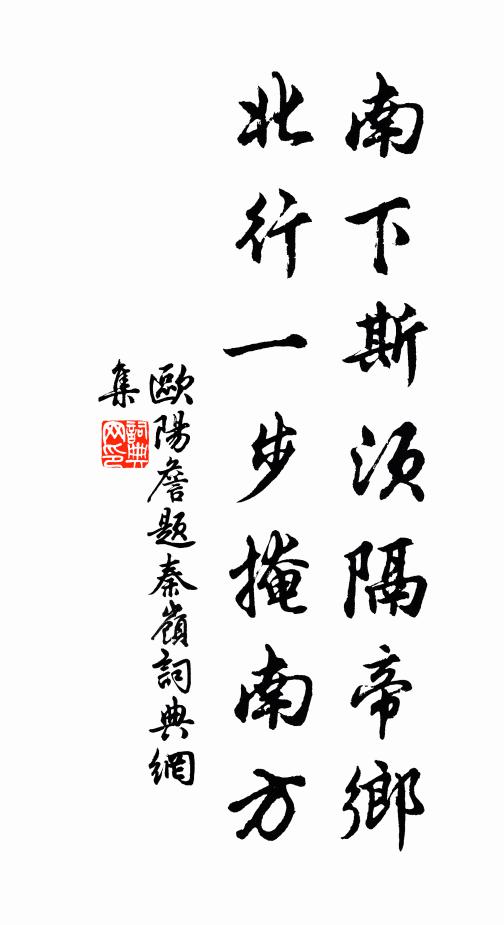 南下斯須隔帝鄉
北行一步掩南方
歐陽詹題秦嶺詞典網
集
詞典
网印